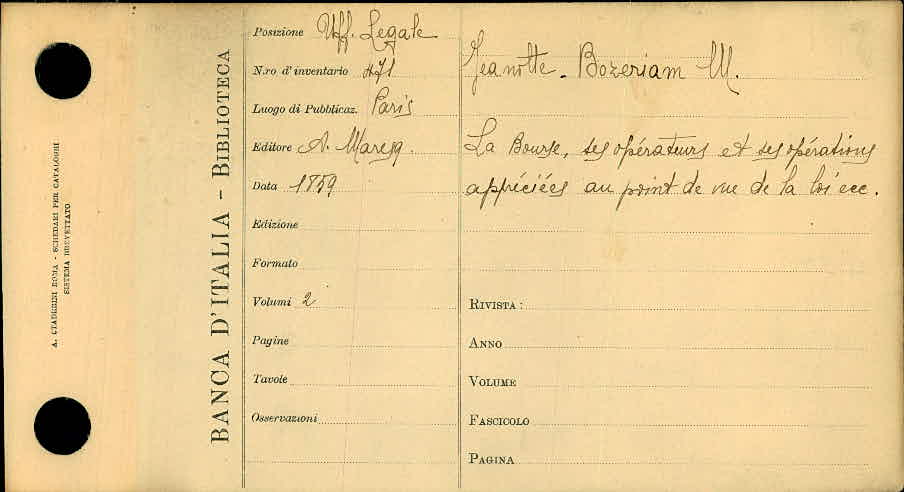 A. STADERINI ROMA - SCHEDARI PER CATALOGHI
SISTEMA BREVETTATO
BANCA D'ITALIA - BIBLIOTECA
Posizione Uff. Legale
N.ro d'inventario 471
Luogo di Pubblicaz. Paris
Editore A. Maresq.
Data 1859
Edizione
Formato
Volumi 2
Pagine
Tavole
Osservazioni
Jeanotte - Bozeriam M.
La Bourse, ses opérateurs et ses opérations
appréciées au point de vue de la loi ecc.
RIVISTA :
ANNO
VOLUME
FASCICOLO
PAGINA